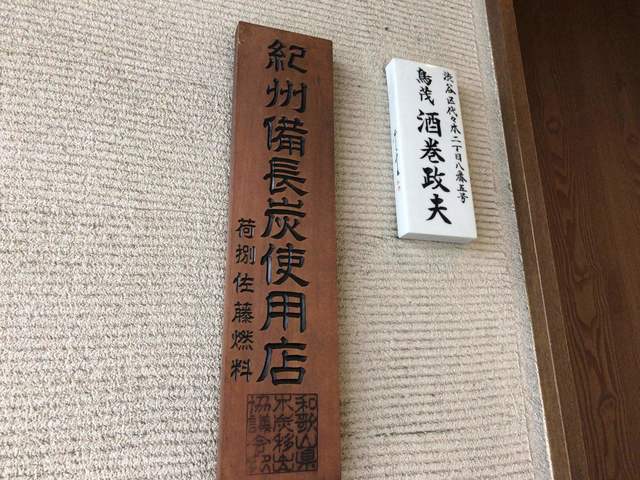 紀州備長炭使用店
荷捌佐藤燃料
和歌山県
木炭移出
協議会
渋谷区代々木二丁目八番五号
鳥茂 酒巻政夫